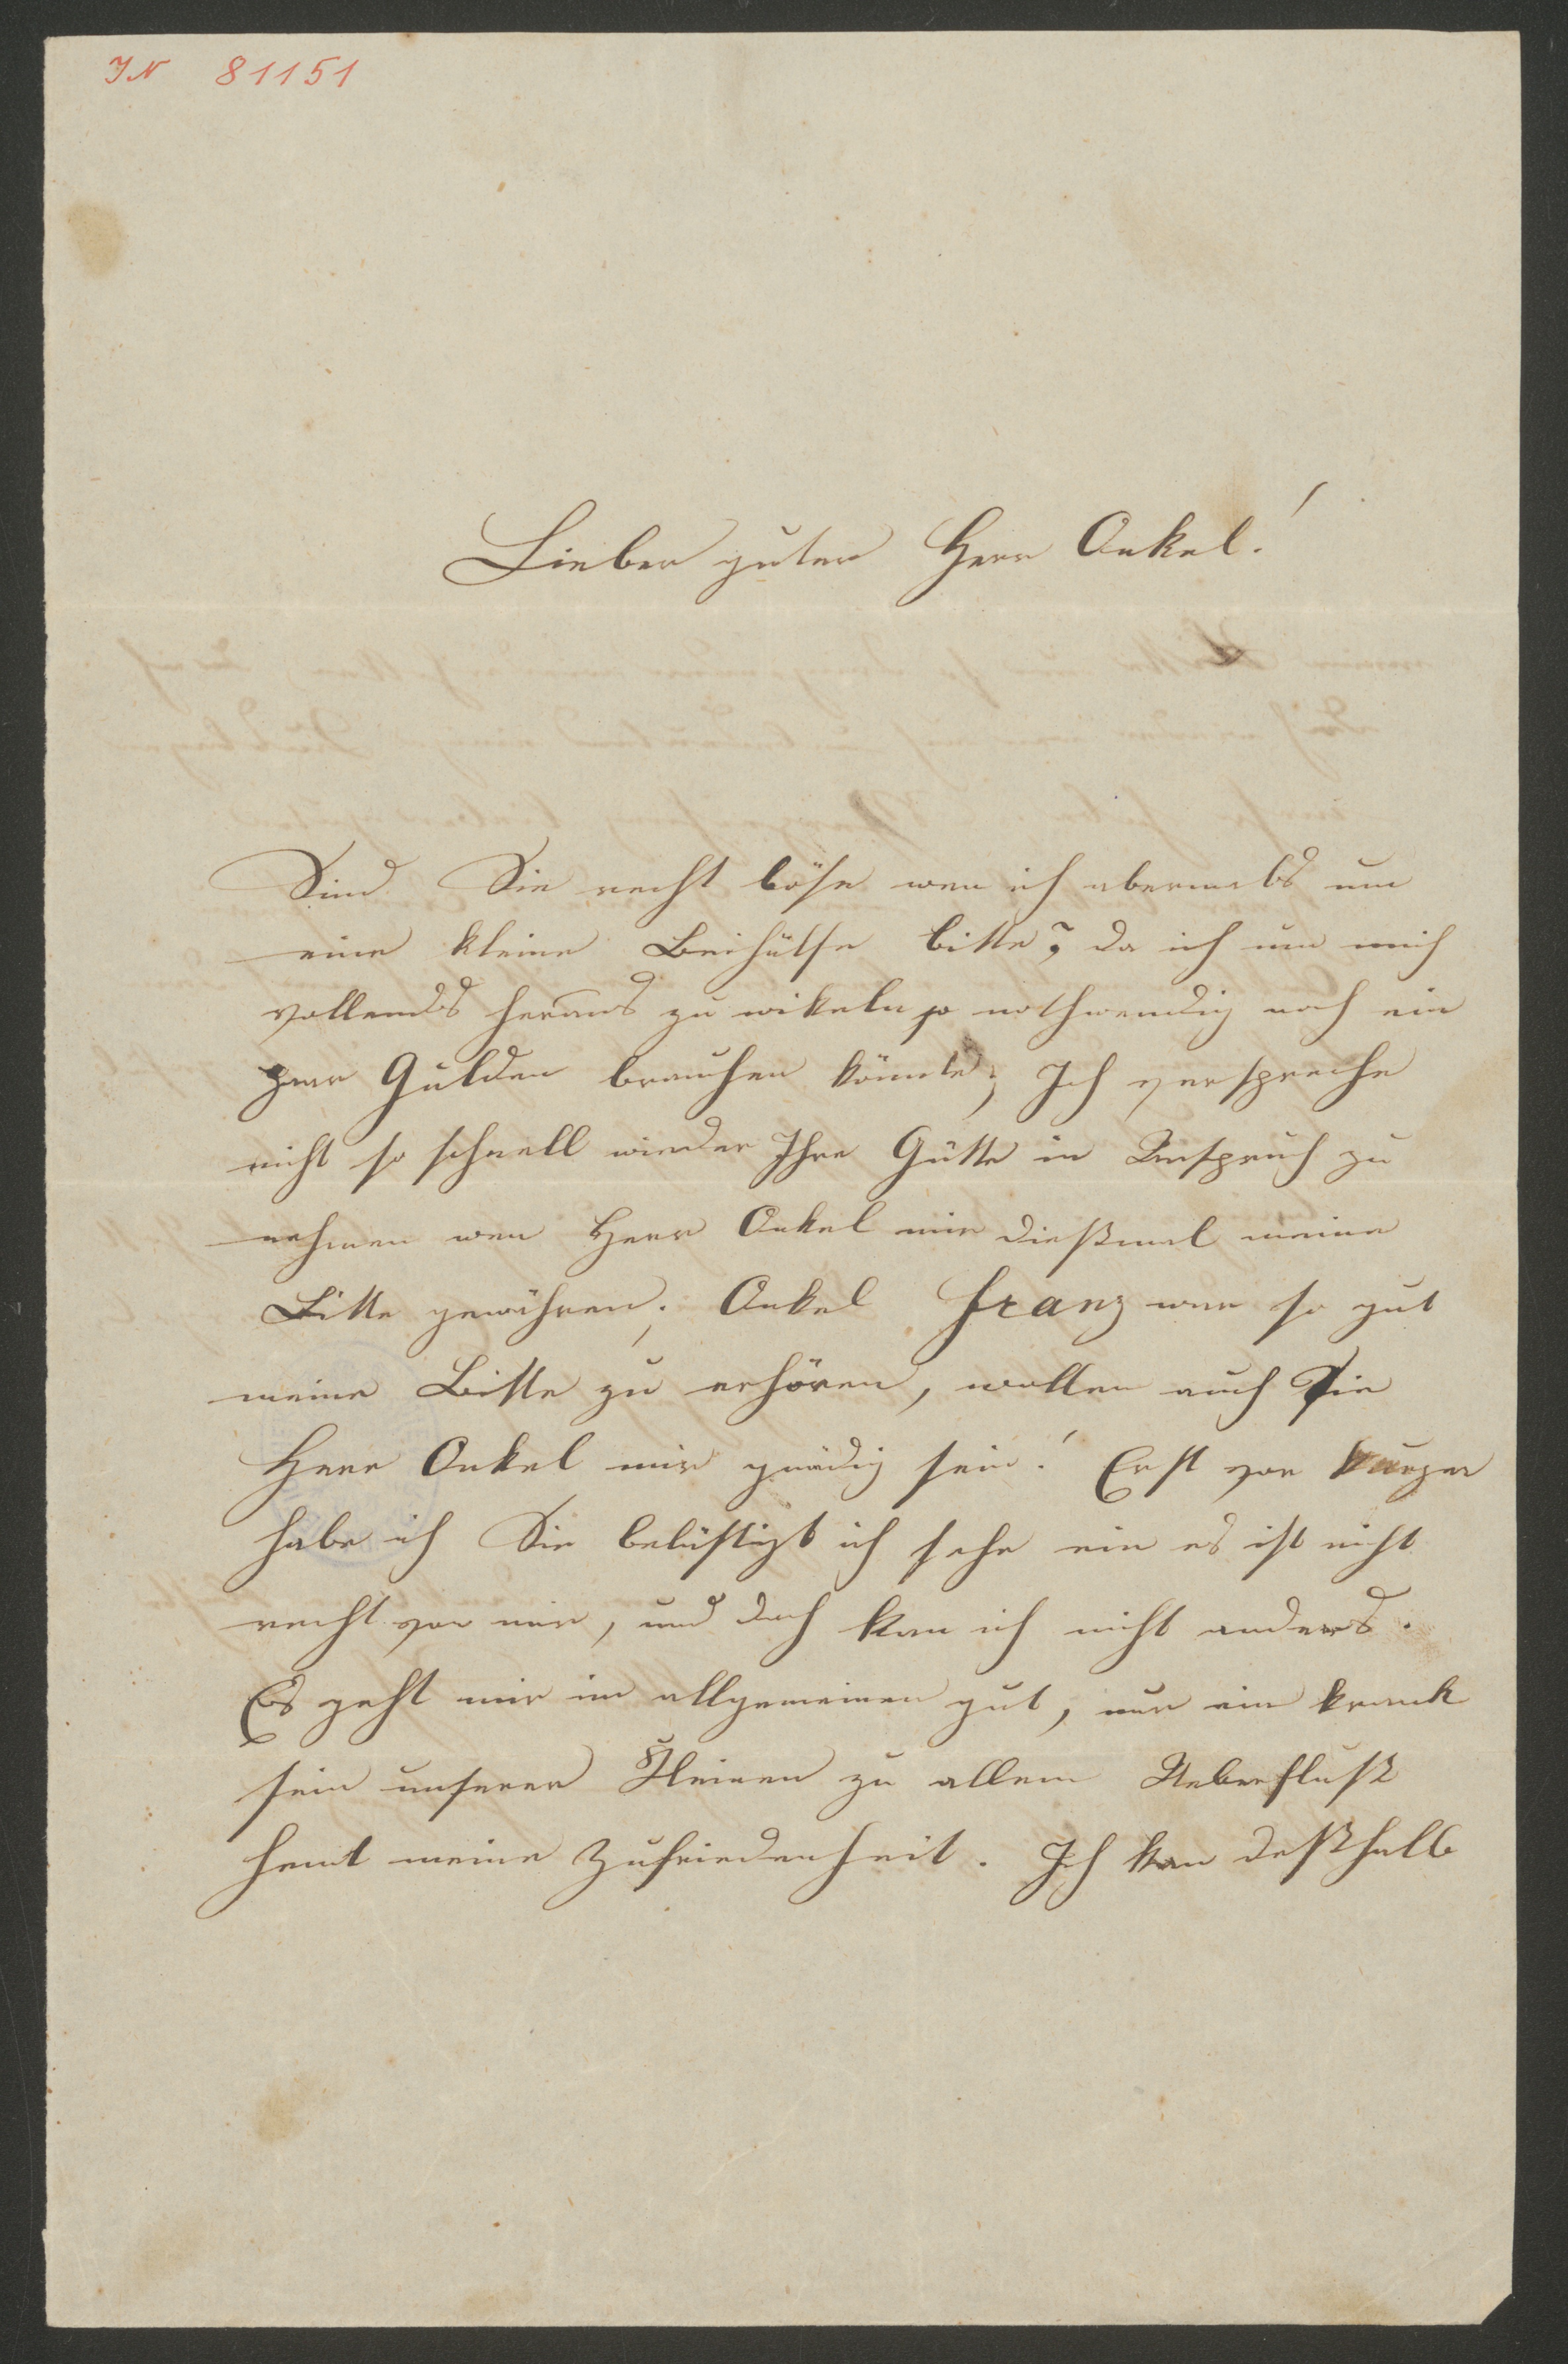 IN 81151
Lieber guter Herr Onkel!
Sind Sie recht böse wen ich abermals um
eine kleine Beihülfe bitte? da ich um mich
vollends heraus zu wikeln so nothwendig noch ein
paar Gulden brauchen könnte; Ich verspreche
nicht so schnell wieder Ihre Gütte in Anspruch zu
nehmen wen Herr Onkel mir dießmal meine
Bitte gewähren; Onkel Franz war so gut
meine Bitte zu erhören, wollen auch Sie
Herr Onkel mir gnädig sein! Erst vor kurzer
habe ich Sie belästigt ich sehe ein es ist nicht
recht von mir, und doch kan ich nicht anders.
Es geht mir im allgemeinen gut, nur ein krank
sein unserer Kleinen zu allem Ueberfluß
hemt meine Zufriedenheit. Ich kan deßhalb